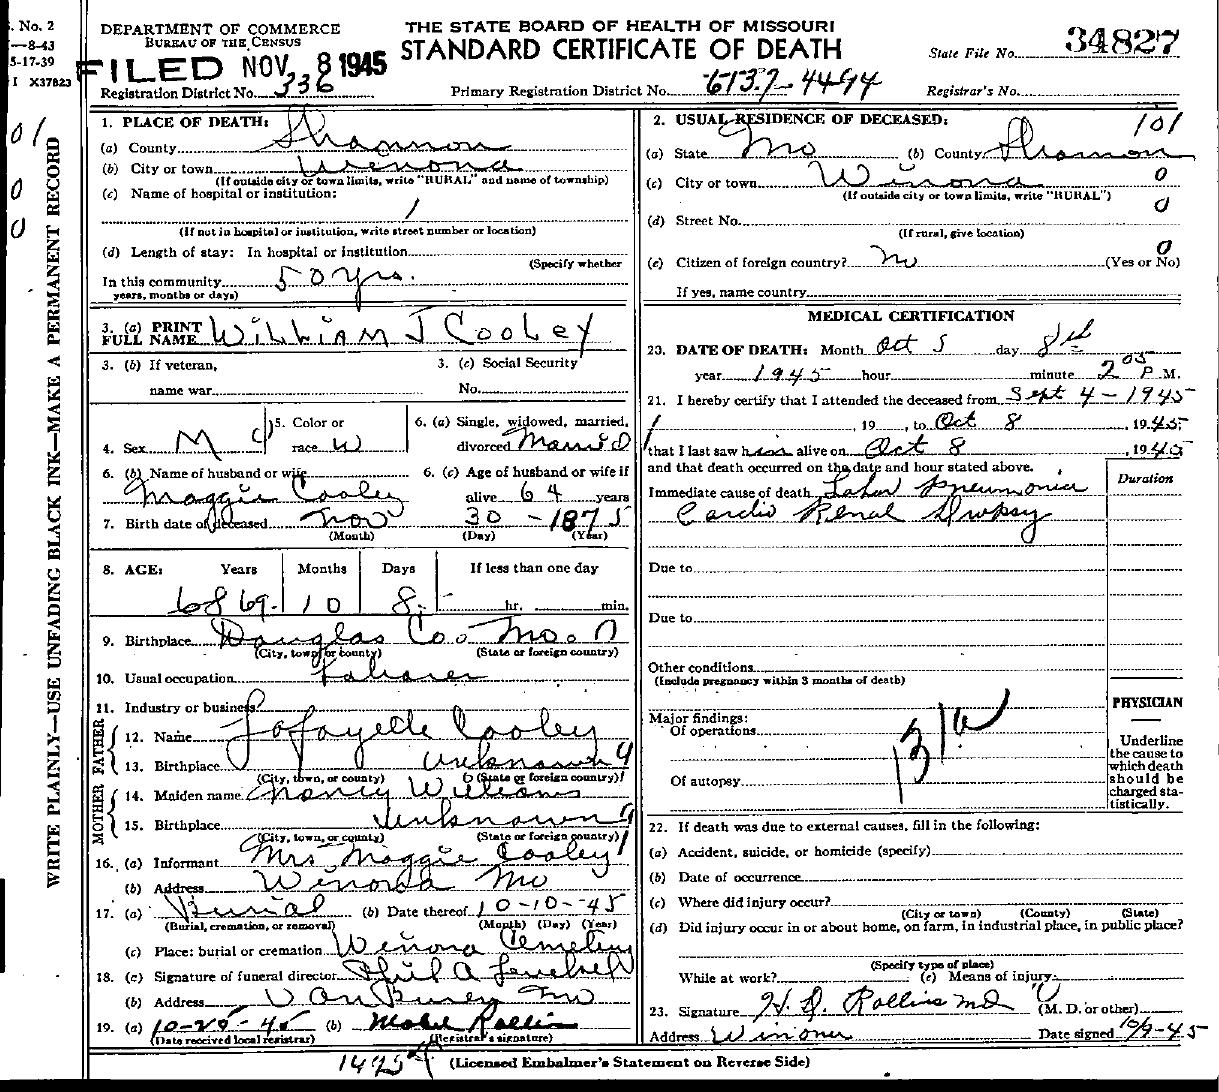 S. No. 2
—8-43
5-17-39
I X37823
DEPARTMENT OF COMMERCE
BUREAU OF THE CENSUS
THE STATE BOARD OF HEALTH OF MISSOURI
STANDARD CERTIFICATE OF DEATH
State File No. 34827
FILED NOV 8 1945
Registration District No. 336
Primary Registration District No. 6137-4494
Registrar's No.
WRITE PLAINLY—USE UNFADING BLACK INK—MAKE A PERMANENT RECORD
0/
0
0
1. PLACE OF DEATH:
(a) County Shannon
(b) City or town Winona
(If outside city or town limits, write "RURAL" and name of township)
(c) Name of hospital or institution:
/
(If not in hospital or institution, write street number or location)
(d) Length of stay: In hospital or institution
(Specify whether
In this community 50 yrs.
years, months or days)
3. (a) PRINT FULL NAME William J Cooley
3. (b) If veteran,
name war
3. (c) Social Security
No.
4. Sex M
5. Color or
race W
6. (a) Single, widowed, married,
divorced Married
6. (b) Name of husband or wife
Maggie Cooley
6. (c) Age of husband or wife if
alive 64 years
7. Birth date of deceased Nov 30 - 1875
(Month) (Day) (Year)
8. AGE: Years Months Days If less than one day
68 69 10 8 hr. min.
9. Birthplace Douglas Co. Mo. 0
(City, town, or county) (State or foreign country)
10. Usual occupation Laborer
11. Industry or business
FATHER
12. Name Lafayette Cooley
13. Birthplace Unknown 9
(City, town, or county) (State or foreign country)
MOTHER
14. Maiden name Nancy Williams
15. Birthplace Unknown 9
(City, town, or county) (State or foreign country)
16. (a) Informant Mrs Maggie Cooley
(b) Address Winona Mo
17. (a) Burial (b) Date thereof 10-10-45
(Burial, cremation, or removal) (Month) (Day) (Year)
(c) Place: burial or cremation Winona Cemetery
18. (c) Signature of funeral director Phil A
(b) Address Van Buren Mo
19. (a) 10-20-45 (b) Mabel Rollins
(Date received local registrar) (Registrar's signature)
2. USUAL RESIDENCE OF DECEASED: 101
(a) State Mo (b) County Shannon
(c) City or town Winona 0
(If outside city or town limits, write "RURAL")
0
(d) Street No.
(If rural, give location)
0
(e) Citizen of foreign country? no (Yes or No)
If yes, name country
MEDICAL CERTIFICATION
23. DATE OF DEATH: Month Oct day 8
year 1945 hour minute 2 05 P.M.
21. I hereby certify that I attended the deceased from Sept 4 - 1945
, 19 , to Oct 8 , 1945
that I last saw him alive on Oct 8 , 1945
and that death occurred on the date and hour stated above.
Duration
Immediate cause of death Lobar Pneumonia
Cardio Renal Dropsy
Due to
Due to
Other conditions
(Include pregnancy within 3 months of death)
Major findings:
Of operations
131a
Of autopsy
PHYSICIAN
Underline
the cause to
which death
should be
charged sta-
tistically.
22. If death was due to external causes, fill in the following:
(a) Accident, suicide, or homicide (specify)
(b) Date of occurrence
(c) Where did injury occur?
(City or town) (County) (State)
(d) Did injury occur in or about home, on farm, in industrial place, in public place?
(Specify type of place)
While at work? (e) Means of injury
23. Signature Rollins MD (M. D. or other)
Address Winona Date signed 10/9-45
(Licensed Embalmer's Statement on Reverse Side)